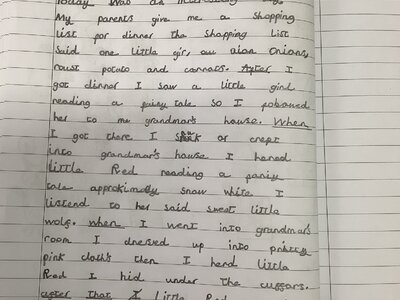 Today was an interesting
My parents give me a shopping
list for dinner the shopping list
said one little gir, onions,
roust potato and carrots. After I
got dinner I saw a little girl
reading a fairy tale so I folowed
her to me grandmar's house. When
I got there I or crept
into grandmar's house I hered
little Red reading a fairy
tale approkimatly snow white I
listend to her said sweet little
wolf. When I went into grandmar's
room I dressed up into pritty
pink cloths then I herd little
Red I hid under the cuffars.
after that I little Red